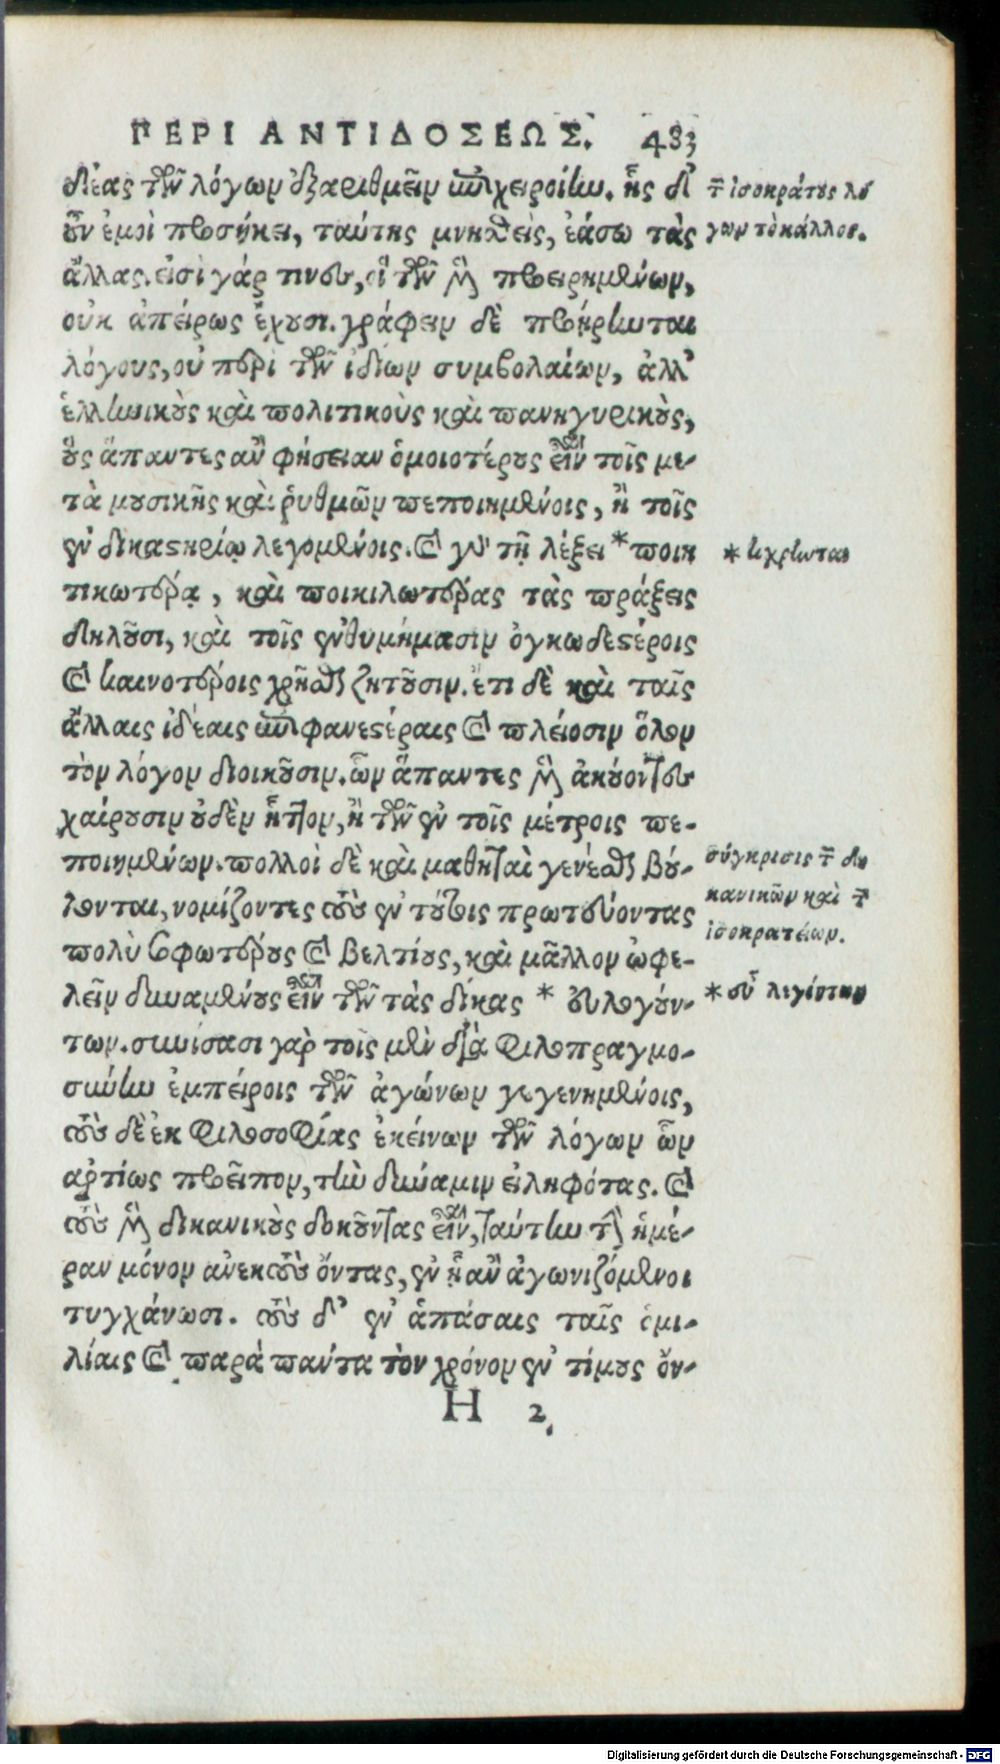 ΠΕΡΙ ΑΝΤΙΔΟΣΕΩΣ. 483
δέας τῶν λόγων ἐξαριθμεῖν ἐπιχειροίην. ἧς δ'
οὖν ἐμοὶ προσήκει, ταύτης μνησθεὶς, ἐάσω τὰς
ἄλλας. εἰσὶ γάρ τινες, οἳ τῶν μὲν προειρημένων,
οὐκ ἀπείρως ἔχουσι. γράφειν δὲ προῄρηνται
λόγους, οὐ περὶ τῶν ἰδίων συμβολαίων, ἀλλ'
ἑλληνικοὺς καὶ πολιτικοὺς καὶ πανηγυρικοὺς,
οὓς ἅπαντες ἂν φήσειαν ὁμοιοτέρους εἶναι τοῖς με-
τὰ μουσικῆς καὶ ῥυθμῶν πεποιημένοις, ἢ τοῖς
ἐν δικαστηρίῳ λεγομένοις. καὶ γὰρ τῇ λέξει * ποιη
τικωτέρᾳ, καὶ ποικιλωτέρας τὰς πράξεις
δηλοῦσι, καὶ τοῖς ἐνθυμήμασιν ὀγκωδεστέροις
καὶ καινοτέροις χρῆσθαι ζητοῦσιν. ἔτι δὲ καὶ ταῖς
ἄλλαις ἰδέαις ἐπιφανεστέραις καὶ πλείοσιν ὅλον
τὸν λόγον διοικοῦσιν. ὧν ἅπαντες μὲν ἀκούοντες
χαίρουσιν οὐδὲν ἧττον, ἢ τῶν ἐν τοῖς μέτροις πε-
ποιημένων. πολλοὶ δὲ καὶ μαθηταὶ γενέσθαι βού-
λονται, νομίζοντες τοὺς ἐν τούτοις πρωτεύοντας
πολὺ σοφωτέρους καὶ βελτίους, καὶ μᾶλλον ὠφε-
λεῖν δυναμένους εἶναι τῶν τὰς δίκας * εὐλεγόν-
των. συνίσασι γὰρ τοῖς μὲν διὰ φιλοπραγμο-
σύνην ἐμπείροις τῶν ἀγώνων γεγενημένοις,
τοὺς δὲ ἐκ φιλοσοφίας ἐκείνων τῶν λόγων ὧν
ἀρτίως προεῖπον, τὴν δύναμιν εἰληφότας. καὶ
τοὺς μὲν δικανικοὺς δοκοῦντας εἶναι, ταύτην τὴν ἡμέ-
ραν μόνον ἀνεκτοὺς ὄντας, ἐν ᾗ ἂν ἀγωνιζόμενοι
τυγχάνωσι. τοὺς δ' ἐν ἁπάσαις ταῖς ὁμι-
λίαις καὶ παρὰ πάντα τὸν χρόνον ἐν τίμους ὄν-
Η 2
τῶν ἰσοκράτους λό
γων τὸ κάλλος.
* κέχρηνται
σύγκρισις τῶν δι
κανικῶν καὶ τῶν
ἰσοκρατείων.
* εὖ λεγόντων
Digitalisierung gefördert durch die Deutsche Forschungsgemeinschaft - DFG